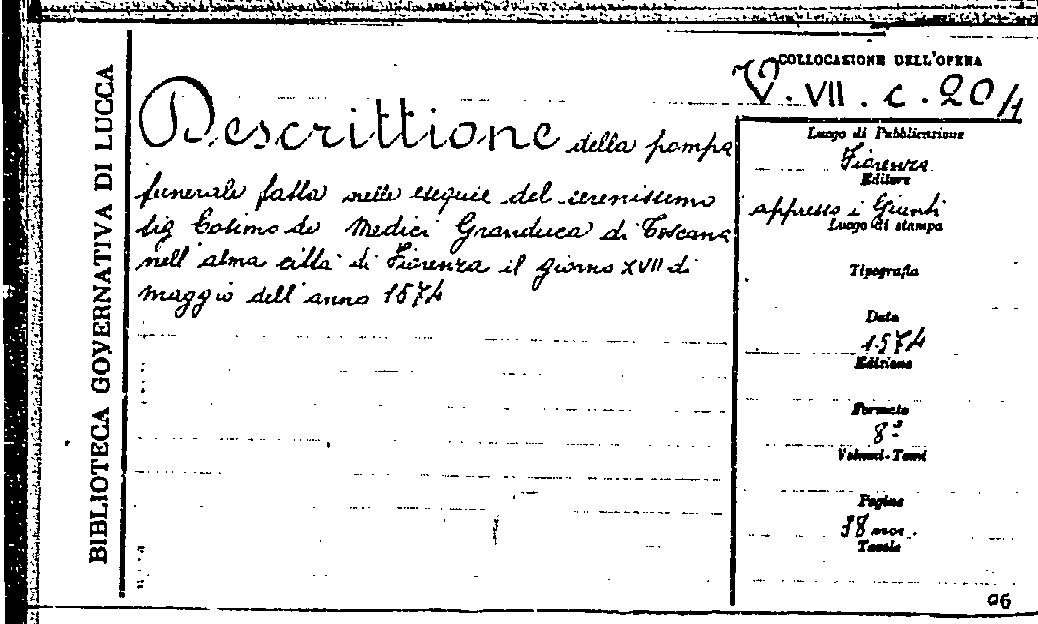 BIBLIOTECA GOVERNATIVA DI LUCCA
COLLOCAZIONE DELL'OPERA
V. VII. c. 20/1
Descrittione della pompa
funerale fatta nelle esequie del serenissimo
sig Cosimo de Medici Granduca di Toscana
nell'alma città di Fiorenza il giorno XVII di
maggio dell'anno 1574
Luogo di Pubblicazione
Fiorenza
Editore
appresso i Giunti
Luogo di stampa
Tipografia
Data
1574
Edizione
Formato
8º
Volumi-Tomi
Pagine
38
Tavole
06